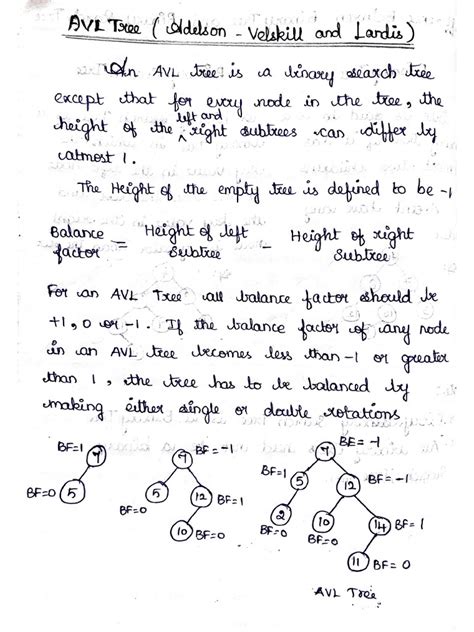 AVL Tree ( Adelson - Velskill and Landis )
An AVL tree is a binary search tree
except that for every node in the tree, the
height of the left and right subtrees can differ by
atmost 1.
The Height of the empty tree is defined to be -1
Balance factor = Height of left Subtree - Height of right Subtree
For an AVL Tree all balance factor should be
+1, 0 or -1. If the balance factor of any node
in an AVL tree becomes less than -1 or greater
than 1, the tree has to be balanced by
making either single or double rotations
BF=1 7
BF=0 5
7 BF=-1
5 BF=0
12 BF=1
10 BF=0
7 BF=-1
BF=1 5
12 BF=-1
2 BF=0
10 BF=0
14 BF=1
11 BF=0
AVL Tree